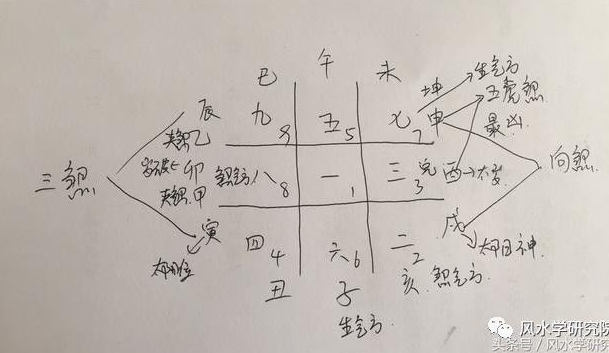 巳 午 未
坤 生气方
辰 九 9 五 5 七 7 申 五虎煞
夹煞乙 最凶
三煞 岁破 卯 煞气方 八 8 一 1 三 3 酉 太岁 向煞
夹煞甲
寅 四 4 六 6 二 2 戌
太阳位 太阳神
丑 子 亥 煞气方
生气方
风水学研究院
头条号 / 风水学研究院